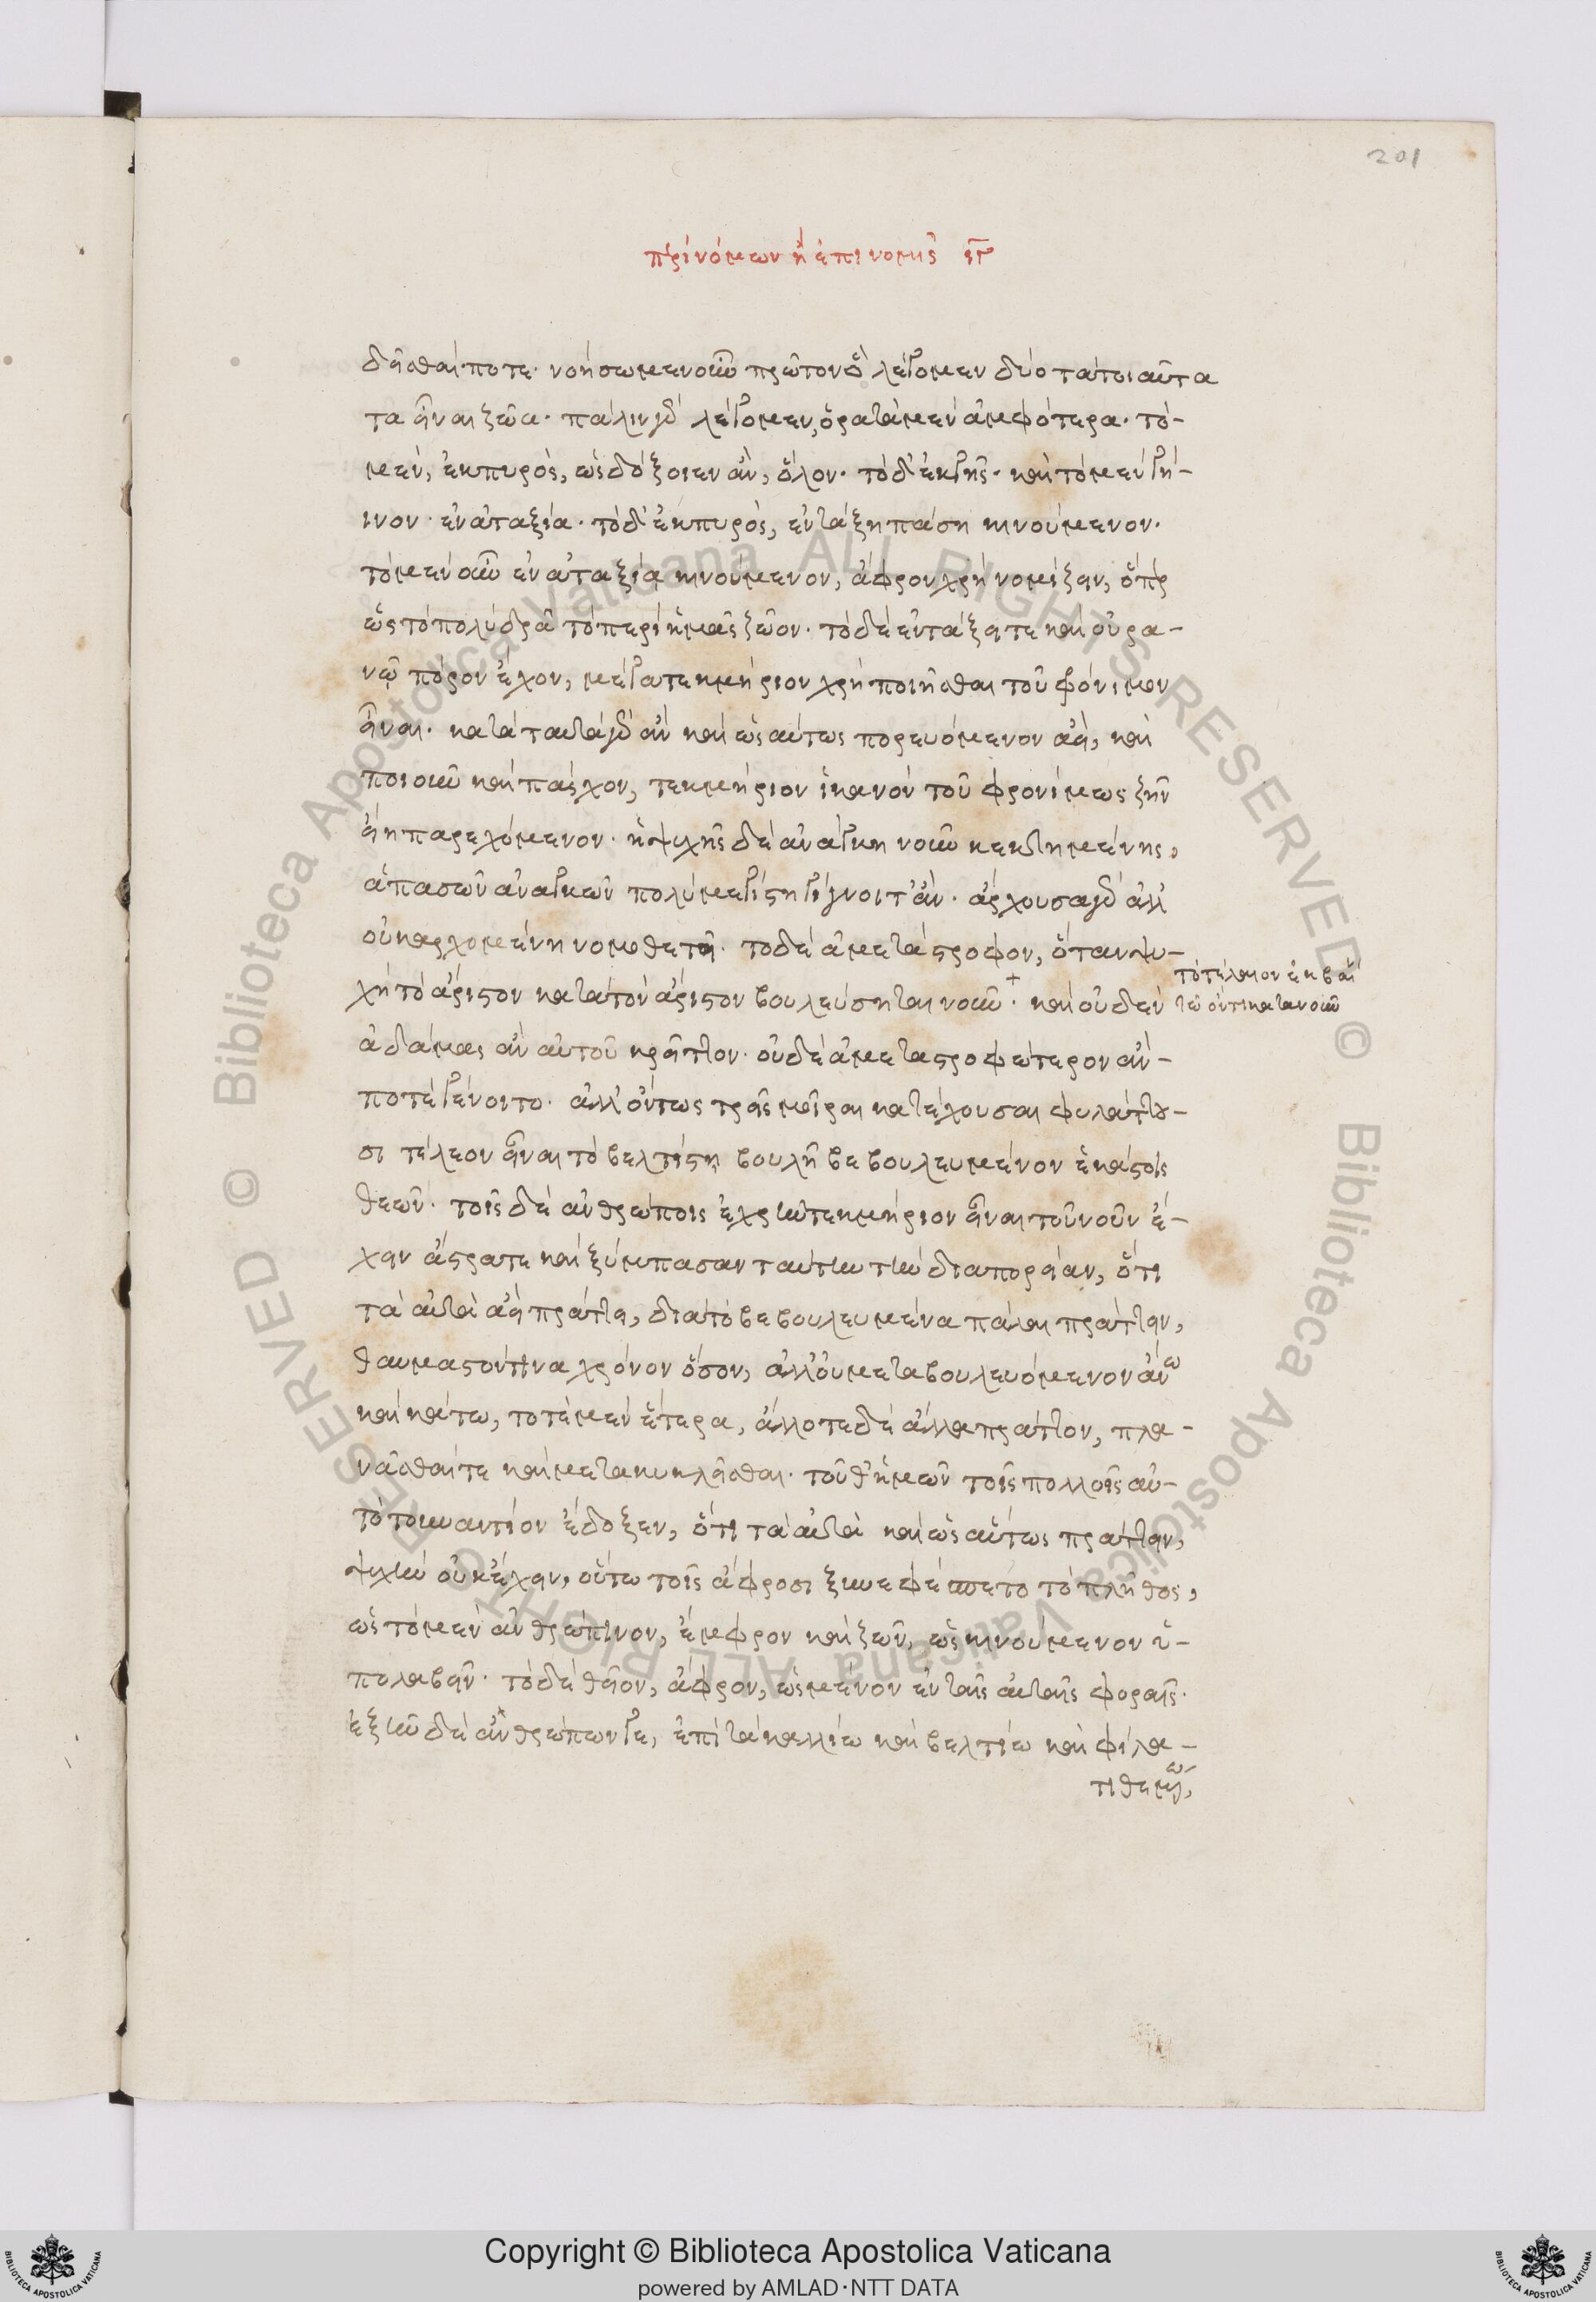 201
περὶ νόμων ἢ ἐπινομὶς ιγ
δεῖσθαί ποτε· νοήσωμεν οὖν πρῶτον ὃ λέγομεν δύο τὰ τοιαῦτα
τα εἶναι ζῶα· πάλιν γὰρ λέγομεν, ὁρατὰ μὲν ἀμφότερα· τὸ-
μὲν, ἐκ πυρὸς, ὡς δόξειεν ἂν, ὅλον· τὸ δ' ἐκ γῆς· καὶ τὸ μὲν γή-
ινον· ἐν ἀταξία· τὸ δ' ἐκ πυρὸς, ἐν τάξη πάση κινούμενον·
τὸ μὲν οὖν ἐν ἀταξία κινούμενον, ἄφρον χρὴ νομίζειν, ὅπερ
ὡς τὸ πολὺ δρᾶ τὸ περὶ ἡμᾶς ζῶον· τὸ δὲ ἐν τάξει τε καὶ οὐρα-
νῷ πόρον ἔχον, μέγα τεκμήριον χρὴ ποιεῖσθαι τοῦ φρόνιμον
εἶναι· κατὰ ταυτὰ γὰρ ἂν καὶ ὡς αύτως πορευόμενον ἀεὶ, καὶ
ποιοῦν καὶ πάσχον, τεκμήριον ἱκανὸν τοῦ φρονίμως ζῆν
εἴη παρεχόμενον· ἡ ψυχῆς δὲ ἀνάγκη νοῦν κεκτημένης,
ἁπασῶν ἀναγκῶν πολὺ μεγίστη γίγνοιτ' ἄν· ἄρχουσα γὰρ ἀλλ'
οὐκ ἀρχομένη νομοθετεῖ· το δὲ ἀμετάστροφον, ὅταν ψυ-
χὴ τὸ ἄριστον κατὰ τὸν ἄριστον βουλεύσηται νοῦν + · καὶ οὐδὲν
τὸ τέλεον ἐκβαί
τῶ ὄντι κατα νοῦν
ἀδάμας ἂν αὐτοῦ κρεῖττον· οὐδὲ ἀμεταστροφώτερον ἂν-
ποτὲ γένοιτο· ἀλλ' ὄντως τρεῖς μοῖραι κατέχουσαι φυλάττου-
σι τέλεον εἶναι τὸ βελτίστη βουλῆ βεβουλευμένον ἑκάστοις
θεῶν· τοῖς δὲ ἀνθρώποις ἐχρῆν τεκμήριον εἶναι τοῦ νοῦν ἔ-
χειν ἄστρα τε καὶ ξύμπασαν ταύτην τὴν διαπορείαν, ὅτι
τὰ αὐτὰ ἀεὶ πράττει, διὰ τὸ βεβουλευμένα πάλαι πράττειν,
θαυμαστόν τινα χρόνον ὅσον, ἀλλ' οὐ μεταβουλευόμενον ἄνω
καὶ κάτω, τοτὲ μὲν ἕτερα, ἄλλοτε δὲ ἄλλα πράττον, πλα-
νᾶσθαί τε καὶ μετακυκλεῖσθαι· τοῦθ' ἡμῶν τοῖς πολλοῖς αὐ-
τὸ τοὐναντίον ἔδοξεν, ὅτι τὰ αὐτὰ καὶ ὡς αὕτως πράττειν,
ψυχὴν οὐκ ἔχειν, οὕτω τοῖς ἄφροσι ξυνεφέσπετο τὸ πλῆθος,
ὡς τὸ μὲν ἀνθρώπινον, ἔμφρον καὶ ζῶν, ὡς κινούμενον ὑ-
πολαβεῖν· τὸ δὲ θεῖον, ἄφρον, ὡς μένον ἐν ταῖς αὐταῖς φοραῖς·
ἐξῆν δὲ ἀνθρώπων γε, ἐπὶ τὰ καλλίω καὶ βελτίω καὶ φίλα-
τιθεμένω,